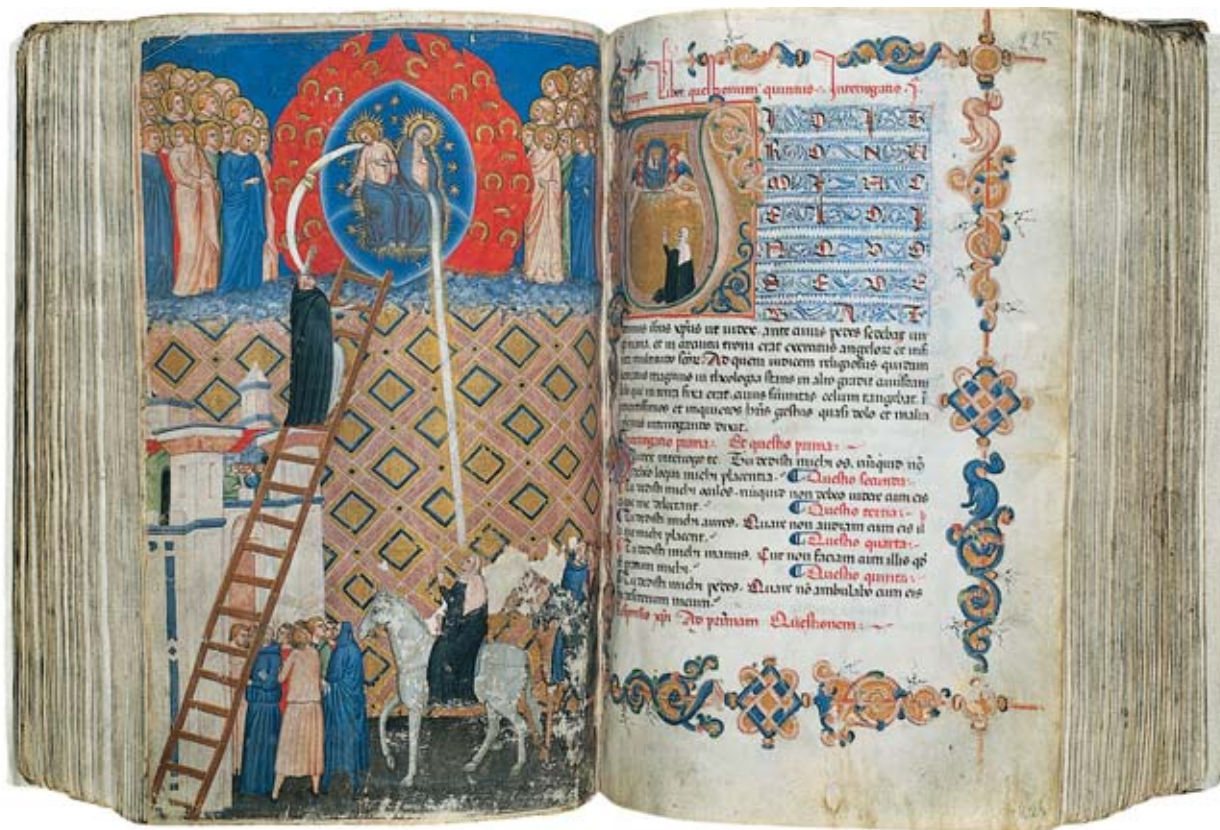 225
Liber questionum quintus. Interrogatio .i.
I D I T
R O N U
M I N C
E L O I
N Q U O
S E D E
B A T
ihus xpus ut iudex. ante cuius pedes sedebat uir
maria. et in circuitu troni erat exercitus angelorum et
multitudo Ad quem iudicem religiosus quidam
magnus in theologia stans in alto gradu
que in terra fixa erat. cuius sumitas celum tangebat.
et inquietos gestus quasi dolo et malicia
interrogando dixit.
Interrogatio prima. Et questio prima.
Iudex interrogo te. Tu dedisti michi os. nunquid nō
debeo loqui michi placentia. Questio secunda.
Tu dedisti michi oculos. nunquid non debeo uidere cum eis
que me delectant. Questio tertia.
Tu dedisti michi aures. Quare non audiam cum eis
que michi placent. Questio quarta.
Tu dedisti michi manus. Cur non faciam cum illis qd
michi. Questio quinta.
Tu dedisti michi pedes. Quare nō ambulabo cum eis
desiderium meum.
Responsio xpi Ad primam Questionem.